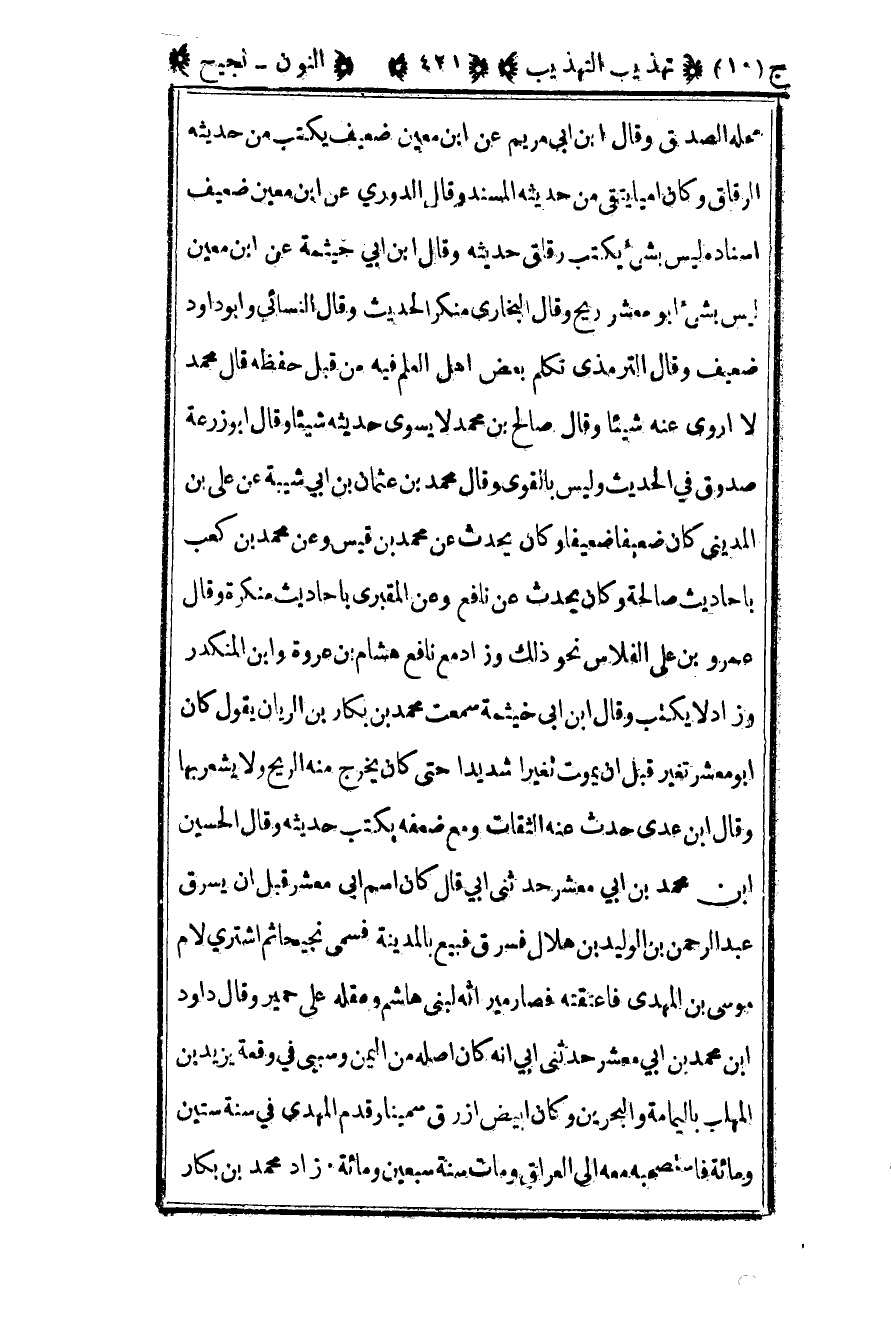 ج (١٠) تهذيب التهذيب ٤٢١ النون - نجيح
محله الصدق وقال ابن ابي مريم عن ابن معين ضعيف يكتب من حديثه
الرقاق وكان اميا يتقى من حديثه المسند وقال الدوري عن ابن معين ضعيف
اسناده ليس بشئ يكتب رقاق حديثه وقال ابن ابي خيثمة عن ابن معين
ليس بشئ ابو معشر ريح وقال البخارى منكر الحديث وقال النسائي وابو داود
ضعيف وقال الترمذى تكلم بعض اهل العلم فيه من قبل حفظه قال محمد
لا اروى عنه شيئا وقال صالح بن محمد لا يسوى حديثه شيئا وقال ابو زرعة
صدوق في الحديث وليس بالقوى وقال محمد بن عثمان بن ابي شيبة عن على بن
المديني كان ضعيفا ضعيفا وكان يحدث عن محمد بن قيس وعن محمد بن كعب
باحاديث صالحة وكان يحدث عن نافع وعن المقبرى باحاديث منكرة وقال
عمرو بن على الفلاس نحو ذلك وزاد مع نافع هشام بن عروة وابن المنكدر
وزاد لا يكتب وقال ابن ابى خيثمة سمعت محمد بن بكار بن الريان يقول كان
ابو معشر تغير قبل ان يموت تغيرا شديدا حتى كان يخرج منه الريح ولا يشعر بها
وقال ابن عدى حدث عنه الثقات ومع ضعفه يكتب حديثه وقال الحسين
ابن محمد بن ابي معشر حدثنى ابي قال كان اسم ابى معشر قبل ان يسرق
عبد الرحمن بن الوليد بن هلال فسرق فبيع بالمدينة فسمى نجيحا ثم اشتري لام
موسى بن المهدى فاعتقته فصار ميراثه لبنى هاشم وعقله على حمير وقال داود
ابن محمد بن ابي معشر حدثنى ابي انه كان اصله من اليمن وسبى في وقعة يزيد بن
المهلب باليمامة والبحرين وكان ابيض ازرق سمينا وقدم المهدى في سنة ستين
ومائة فاستصحبه معه الى العراق ومات سنة سبعين ومائة ٠ زاد محمد بن بكار